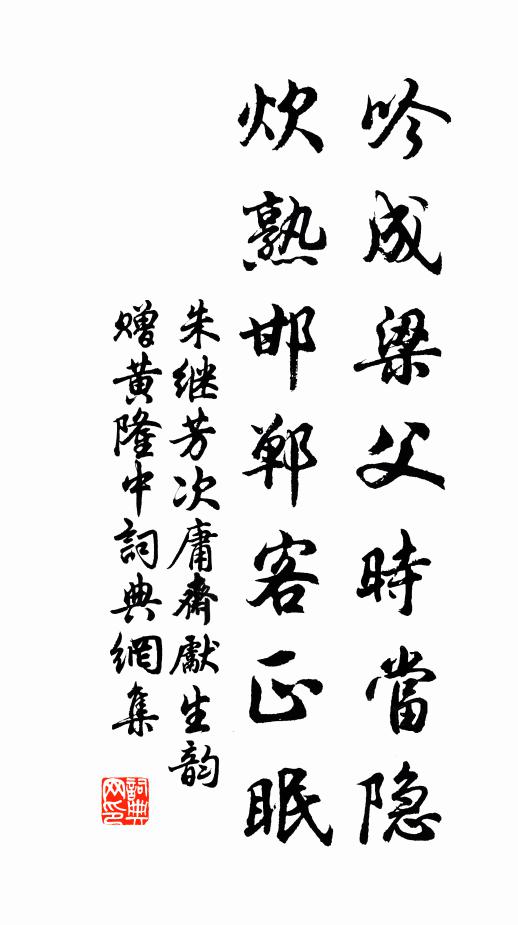 吟成梁父時當隐
炊熟邯鄲客正眠
朱继芳次庸齋獻生韵
贈黄隆中詞典網集
詞典网印